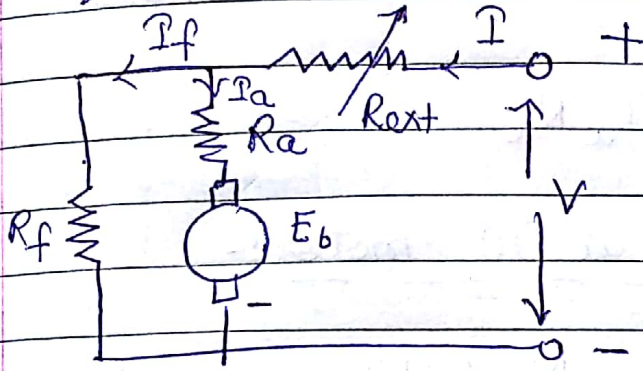 If I +
Ia
Rext
Ra
V
Rf Eb
-
-